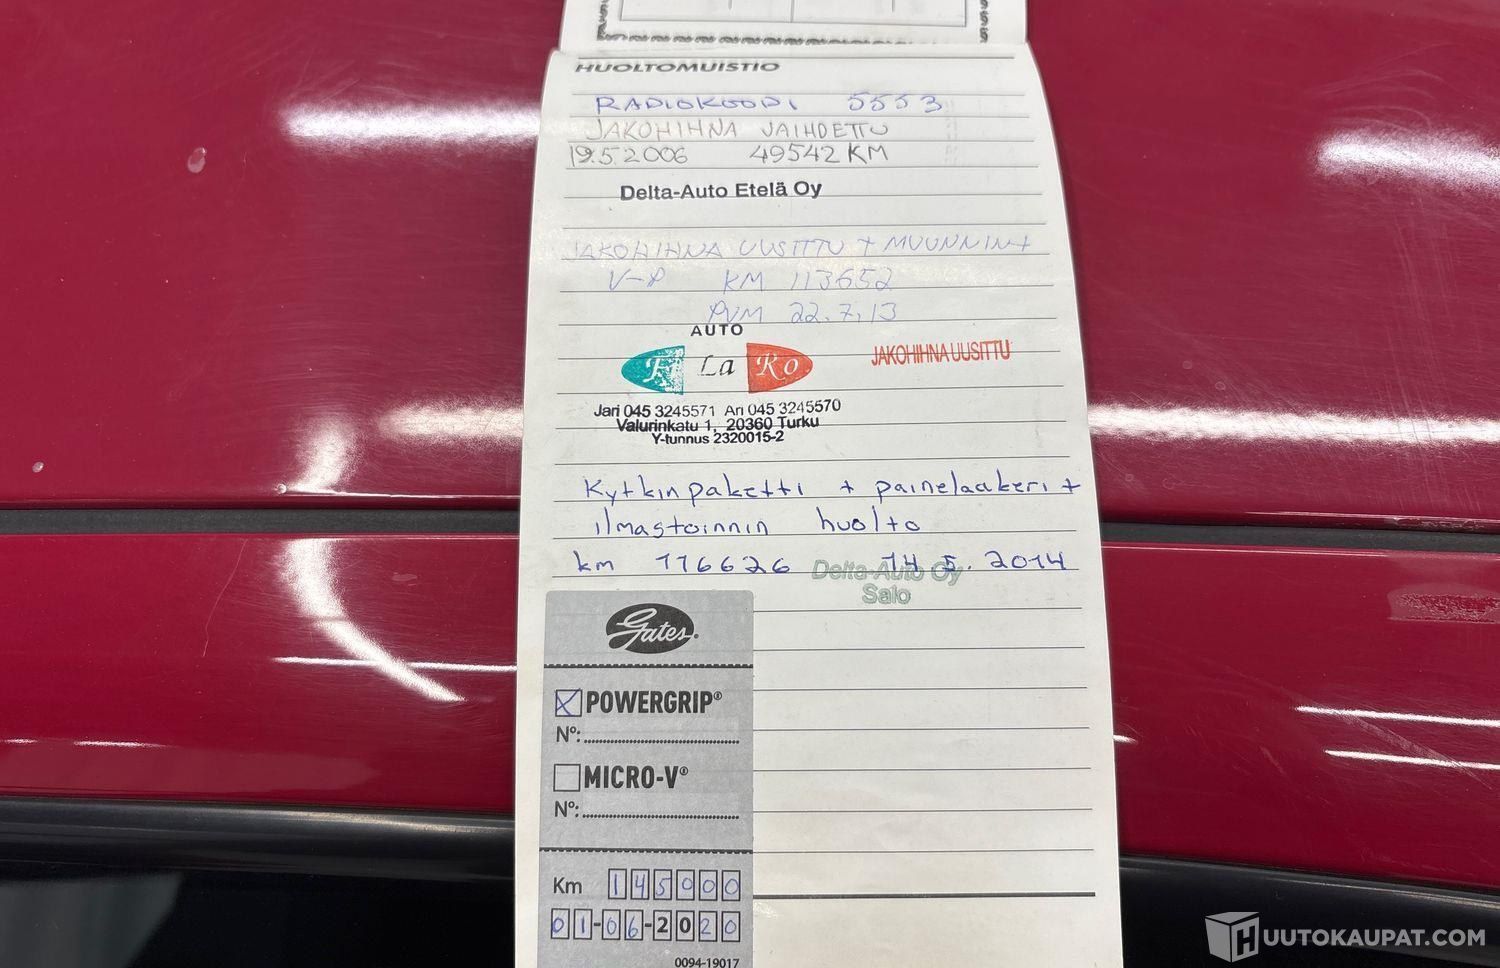 HUOLTOMUISTIO
RADIOKOODI 5553
JAKOHIHNA VAIHDETTU
19.5.2006 49542 KM
Delta-Auto Etelä Oy
JAKOHIHNA UUSITTU + MUUNNIN+
V-P KM 113652
PVM 22.7.13
AUTO
Fi La Ro
JAKOHIHNA UUSITTU
Jari 045 3245571 Ari 045 3245570
Valurinkatu 1, 20360 Turku
Y-tunnus 2320015-2
Kytkinpaketti + painelaakeri +
ilmastoinnin huolto
km 116626 14.5.2014
Delta-Auto Oy
Salo
Gates®
POWERGRIP®
Nº:
MICRO-V®
Nº:
Km 145000
01-06-2020
0094-19017
HUUTOKAUPAT.COM